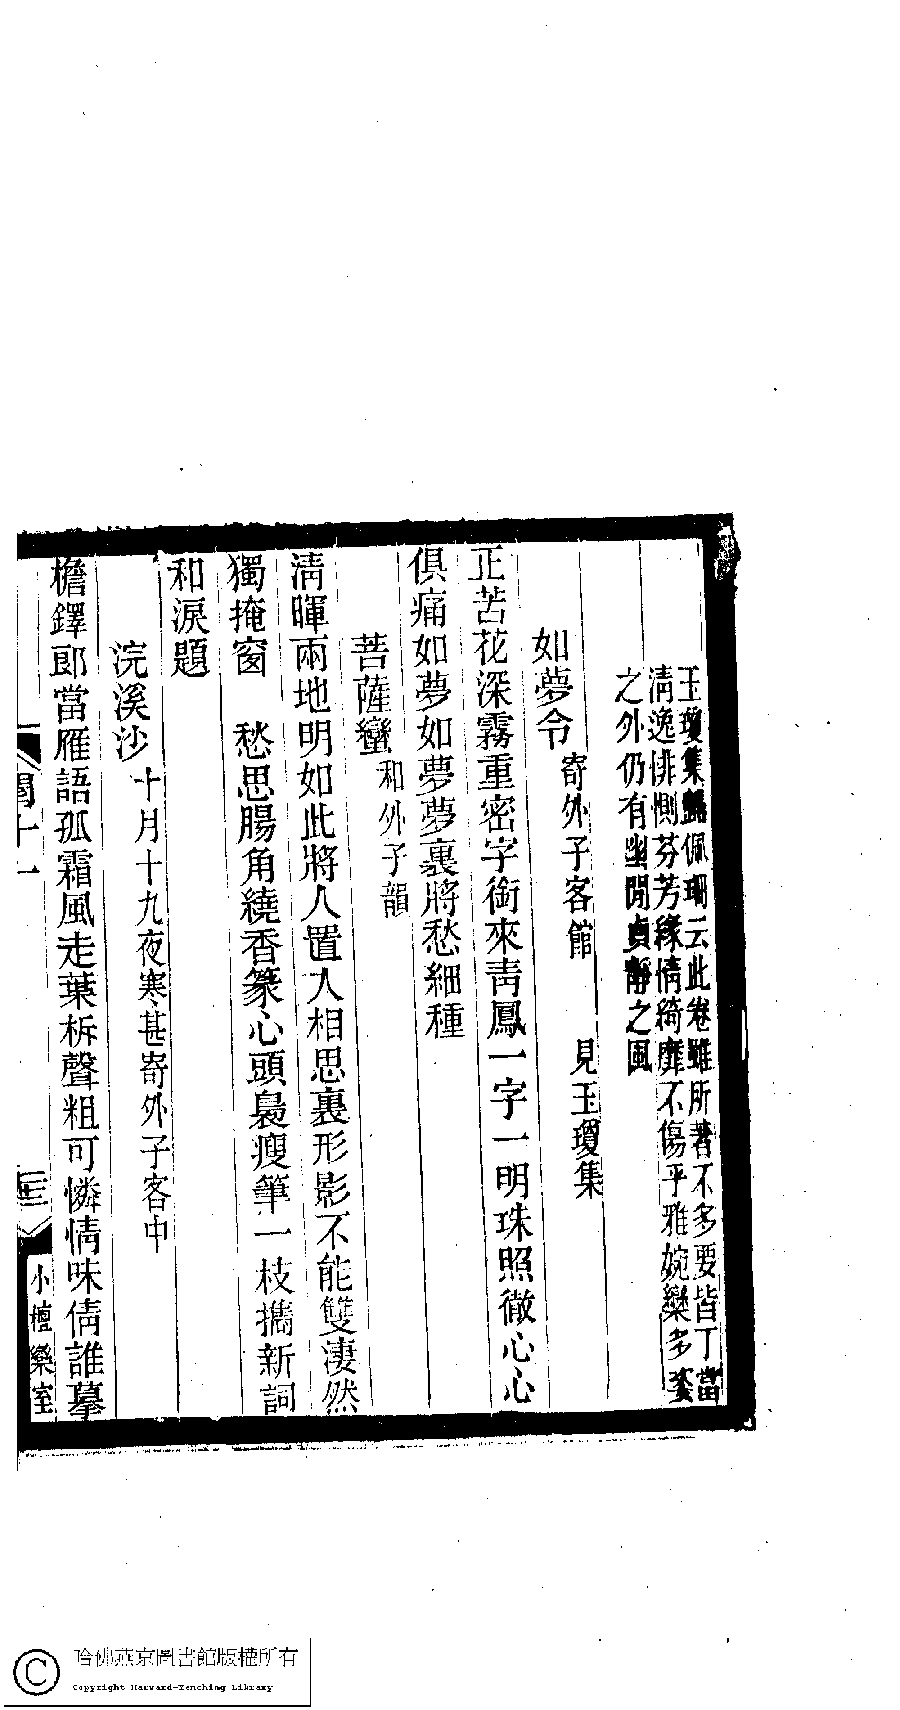 玉瓊集歸佩珊云此卷雖所著不多要皆丁當
清逸悱惻芬芳緣情綺靡不傷乎雅婉孌多姿
之外仍有幽閒貞靜之風
如夢令 寄外子客館 見玉瓊集
正苦花深霧重密字銜來青鳳一字一明珠照徹心心
俱痛如夢如夢夢裏將愁細種
菩薩蠻 和外子韻
清暉兩地明如此將人置入相思裏形影不能雙淒然
獨掩窗 愁思腸角繞香篆心頭裊瘦筆一枝攜新詞
和淚題
浣溪沙 十月十九夜寒甚寄外子客中
檐鐸郎當雁語孤霜風走葉柝聲粗可憐情味倩誰摹
閨十一
小檀欒室
哈佛燕京圖書館版權所有
Copyright Harvard-Yenching Library